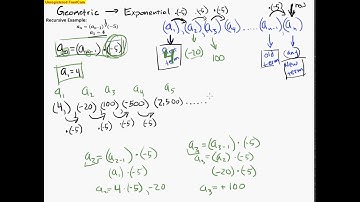 Geometric → Exponential
Recursive Example:
aₙ = (aₙ₋₁)·(-5)
a₁ = 4
·(-5) ·(-5) ·(-5) ·(-5)
(a₁) (a₂) (a₃) (a₄) ..... (aₙ₋₁) (aₙ)
(-20) 100
old term
Any
New term
a₁ = 4
a₁ a₂ a₃ a₄ a₅
(4), (-20) (100) (-500) (2,500) .......
·(-5) ·(-5) ·(-5) ·(-5)
a₂ = (a₂₋₁)·(-5)
(a₁)·(-5)
a₂ = 4·(-5) = -20
a₃ = (a₃₋₁)·(-5)
a₃ = (a₂)·(-5)
(-20)·(-5)
a₃ = +100